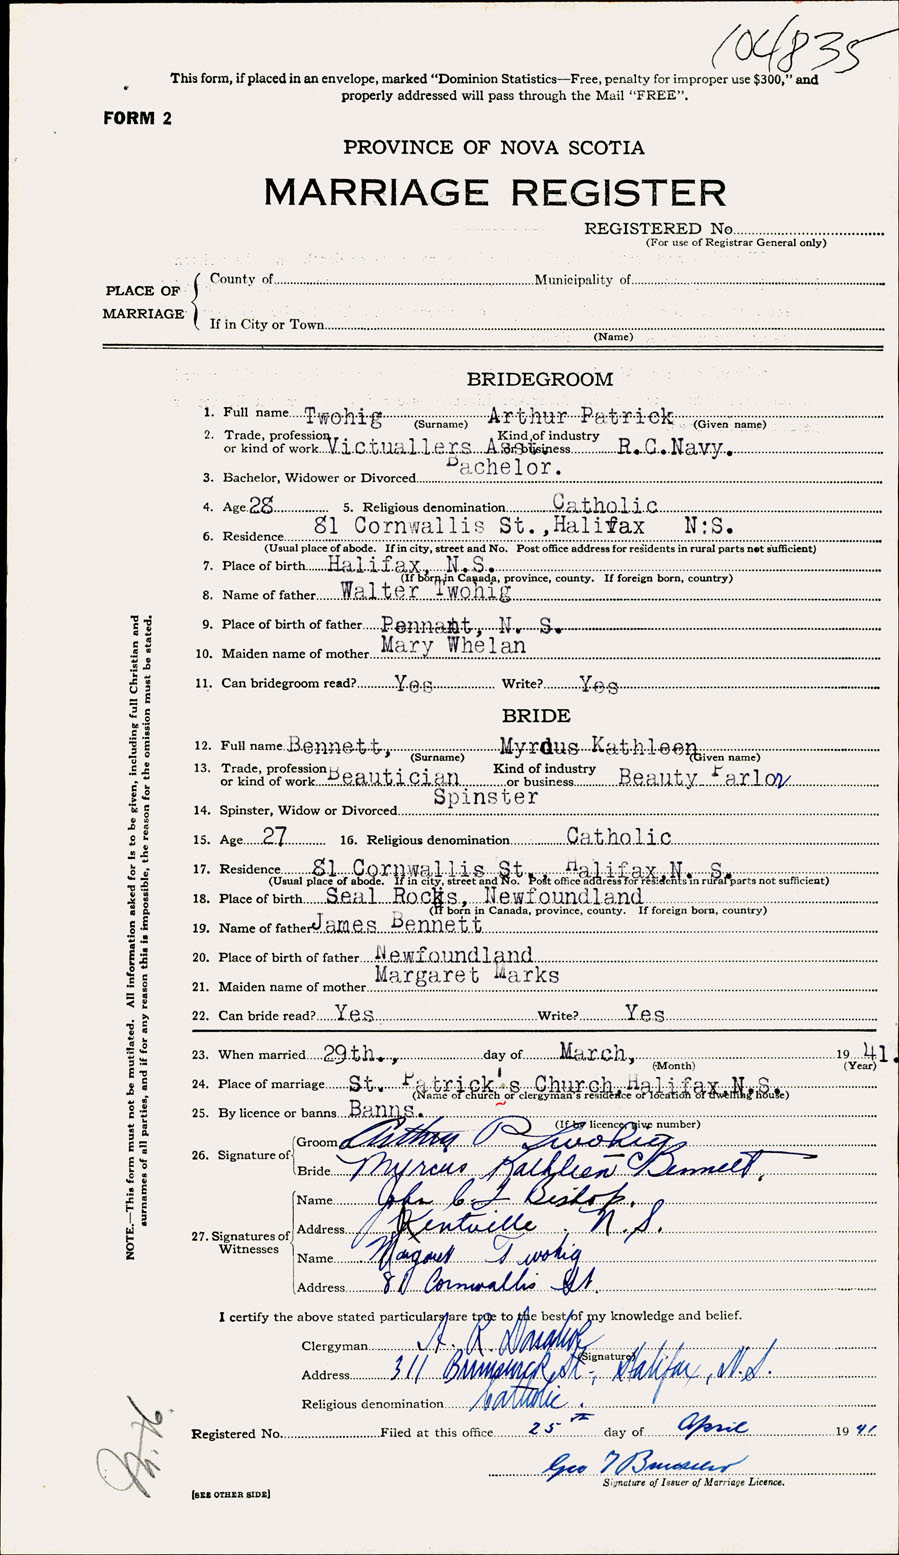 104835
This form, if placed in an envelope, marked “Dominion Statistics—Free, penalty for improper use $300,” and
properly addressed will pass through the Mail “FREE”.
FORM 2
PROVINCE OF NOVA SCOTIA
MARRIAGE REGISTER
REGISTERED No.
(For use of Registrar General only)
PLACE OF MARRIAGE
County of Municipality of
If in City or Town
(Name)
BRIDEGROOM
1. Full name Twohig (Surname) Arthur Patrick (Given name)
2. Trade, profession or kind of work Victuallers Asst. Kind of industry or business R.C.Navy.
3. Bachelor, Widower or Divorced Bachelor.
4. Age 28 5. Religious denomination Catholic
6. Residence 81 Cornwallis St.,Halifax N:S.
(Usual place of abode. If in city, street and No. Post office address for residents in rural parts not sufficient)
7. Place of birth Halifax, N.S.
(If born in Canada, province, county. If foreign born, country)
8. Name of father Walter Twohig
9. Place of birth of father Pennant, N. S.
10. Maiden name of mother Mary Whelan
11. Can bridegroom read? Yes Write? Yes
BRIDE
12. Full name Bennett, (Surname) Myrdus Kathleen (Given name)
13. Trade, profession or kind of work Beautician Kind of industry or business Beauty Parlor
14. Spinster, Widow or Divorced Spinster
15. Age 27 16. Religious denomination Catholic
17. Residence 81 Cornwallis St., Halifax,N. S.
(Usual place of abode. If in city, street and No. Post office address for residents in rural parts not sufficient)
18. Place of birth Seal Rocks, Newfoundland
(If born in Canada, province, county. If foreign born, country)
19. Name of father James Bennett
20. Place of birth of father Newfoundland
21. Maiden name of mother Margaret Marks
22. Can bride read? Yes Write? Yes
23. When married 29th., day of March, (Month) 1941. (Year)
24. Place of marriage St. Patrick's Church,Halifax,N.S.
(Name of church or clergyman's residence or location of dwelling house)
25. By licence or banns Banns.
(If by licence give number)
26. Signature of Groom Arthur P Twohig
Bride Myrcus Kathleen Bennett.
27. Signatures of Witnesses
Name John C Bishop.
Address Kentville. N.S.
Name Margaret Twohig
Address 81 Cornwallis St.
I certify the above stated particulars are true to the best of my knowledge and belief.
Clergyman A. R. Donahoe
(Signature)
Address 311 Brunswick St., Halifax, N.S.
Religious denomination Catholic.
Registered No. Filed at this office 25th day of April 1941
Geo
Signature of Issuer of Marriage Licence.
[SEE OTHER SIDE]
NOTE.—This form must not be mutilated. All information asked for is to be given, including full Christian and
surnames of all parties, and if for any reason this is impossible, the reason for the omission must be stated.